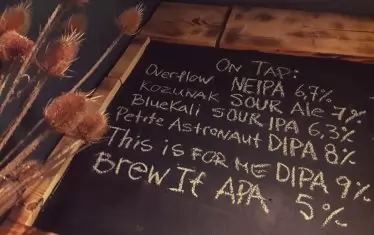 On TAP:
Overflow NEIPA 6,7%
KOZUNAK SOUR Ale 7%
BlueKali SOUR IPA 6,3%
Petite Astronaut DIPA 8%
This is FOR ME DIPA 9%
Brew It APA 5%